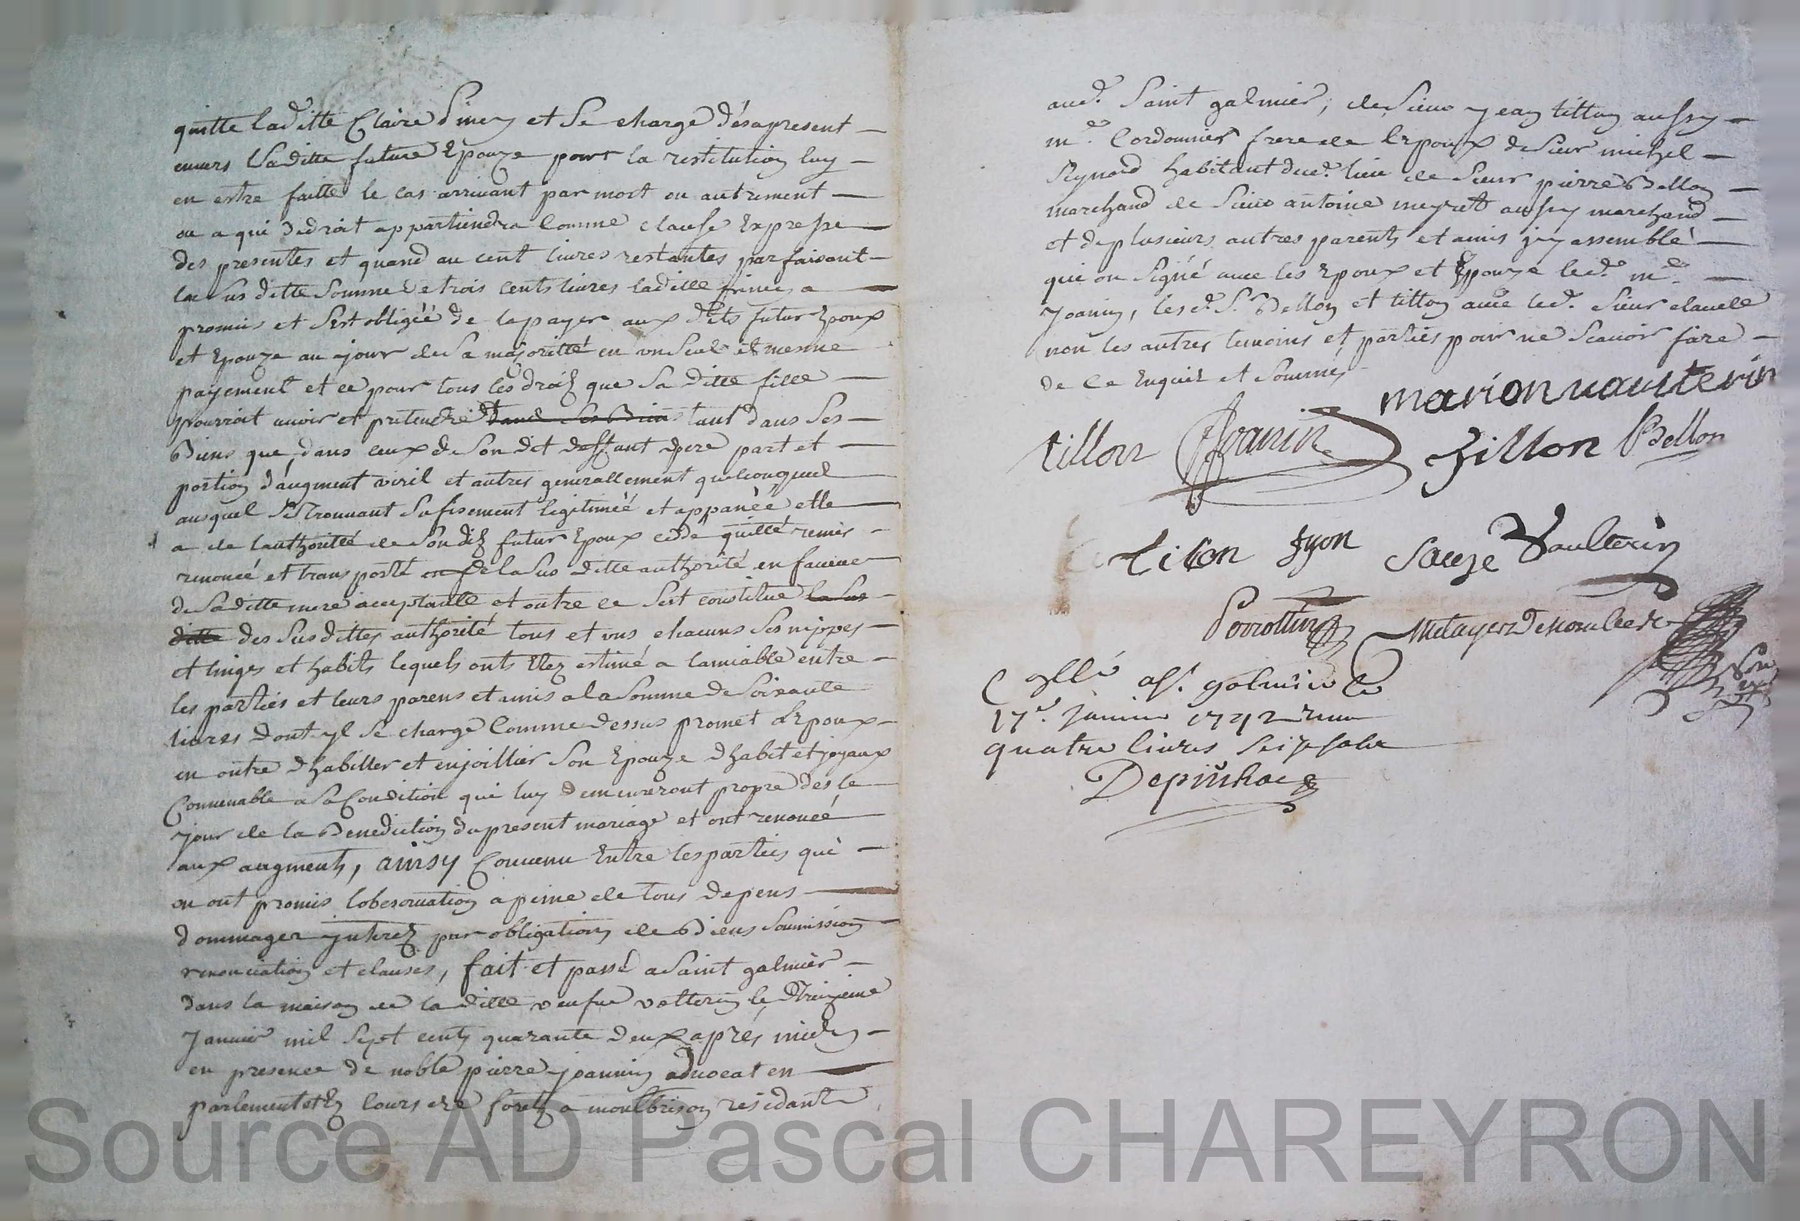 quitte laditte Claire Simery et Se charge désapresent
envers Laditte future Epouze pour la restitution luy
en estre faitte le cas arrivant par mort ou autrement
ou a qui de droit appartiendra Comme clause Expresse
des presentes et quand au cent livres restantes parfaisant
la Sus ditte Somme de trois cents livres laditte a
promis et S'est obligéé de la payer aux dits futur Epoux
et Epouze au jour de Sa majoritté en un Seul et mesme
payement et ce pour tous les droits que Sa ditte fille
pourroit avoir et pretendre dans Ses Biens tant dans Ses
Biens que dans ceux de Son dit deffunt pere part et
portion d'augment viril et autres generallement quelconques
ausquel S'Estrouvant Sufisement legitiméé et appanéé elle
a de l'authoritté de Son dit futur Epoux cede quitté remis
renoncé et transporté de la Sus ditte authorité en faveur
de Saditte mere acceptante et outre ce S'est constitué la Sus
ditte des Susdittes authorité tous et uns chacuns Ses nippes
et linges et habits lequels onts Etez estimé a lamiable entre
les parties et leurs parens et amis a la Somme de Soixante
livres dont yl Se charge Comme dessus promet l'Epoux
en outre d'habiller et enjoillier Son Epouze d'habit et joyaux
Convenable a Sa Condition qui luy demeureront propre des le
jour de la Benediction du present mariage et ont renoncé
aux augments, ainsy Convenu Entre les parties qui
en ont promis lobservation a peine de tous depens
dommages jnterez par obligation de Biens Soumission
renonciation et clauses, fait et passé a Saint galmier
dans la maison de la ditte veufve volterin le treizieme
Janvier mil Sept cents quarante deux apres midy
en presence de noble pierre joannin advocat en
parlement et Cours de forets a montbrison residant
aud. Saint galmier, de Sieur jean tillon aussy
me. Cordonnier frere de l'Epoux de Sieur michel
Reynard habitant dud. lieu de Sieur pierre Bellon
marchand de Sieur antoine meyrett aussy marchand
et de plusieurs autres parents et amis jcy assemblé
qui on Signé avec les Epoux et Epouze led. me.
Joanin, les d. Srs. Bellon et tillon avec led. Sieur clavell
non les autres temoins et parties pour ne Scavoir faire
de Ce Enquis et Sommés
marion vauterin
tillon Joanin Zillon Bellon
tilon Lyon Sauze Vaulterin
Porrottin
Cellé a St. galmier le
17e. janvier 1742 reçu
quatre livres seize sols
Depinhac